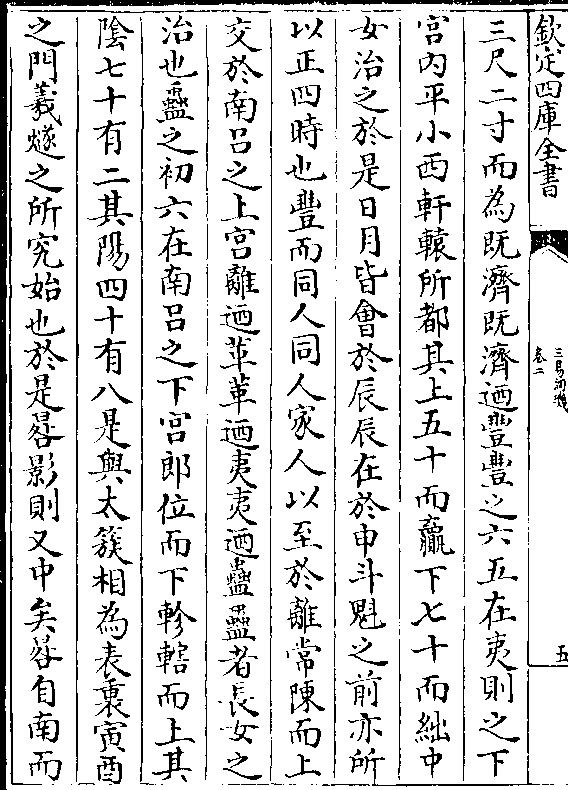 欽定四庫全書
三易洞璣
卷二
五
三尺二寸而為既濟既濟迺豐豐之六五在夷則之下
宮内平小西軒轅所都其上五十而贏下七十而絀中
女治之於是日月皆會於辰辰在於申斗魁之前亦所
以正四時也豐而同人同人家人以至於離常陳而上
交於南吕之上宮離迺革革迺夷夷迺蠱蠱者長女之
治也蠱之初六在南吕之下宮郎位而下軫轄而上其
陰七十有二其陽四十有八是與太簇相為表裏寅酉
之門羲燧之所究始也於是晷影則又中矣晷自南而